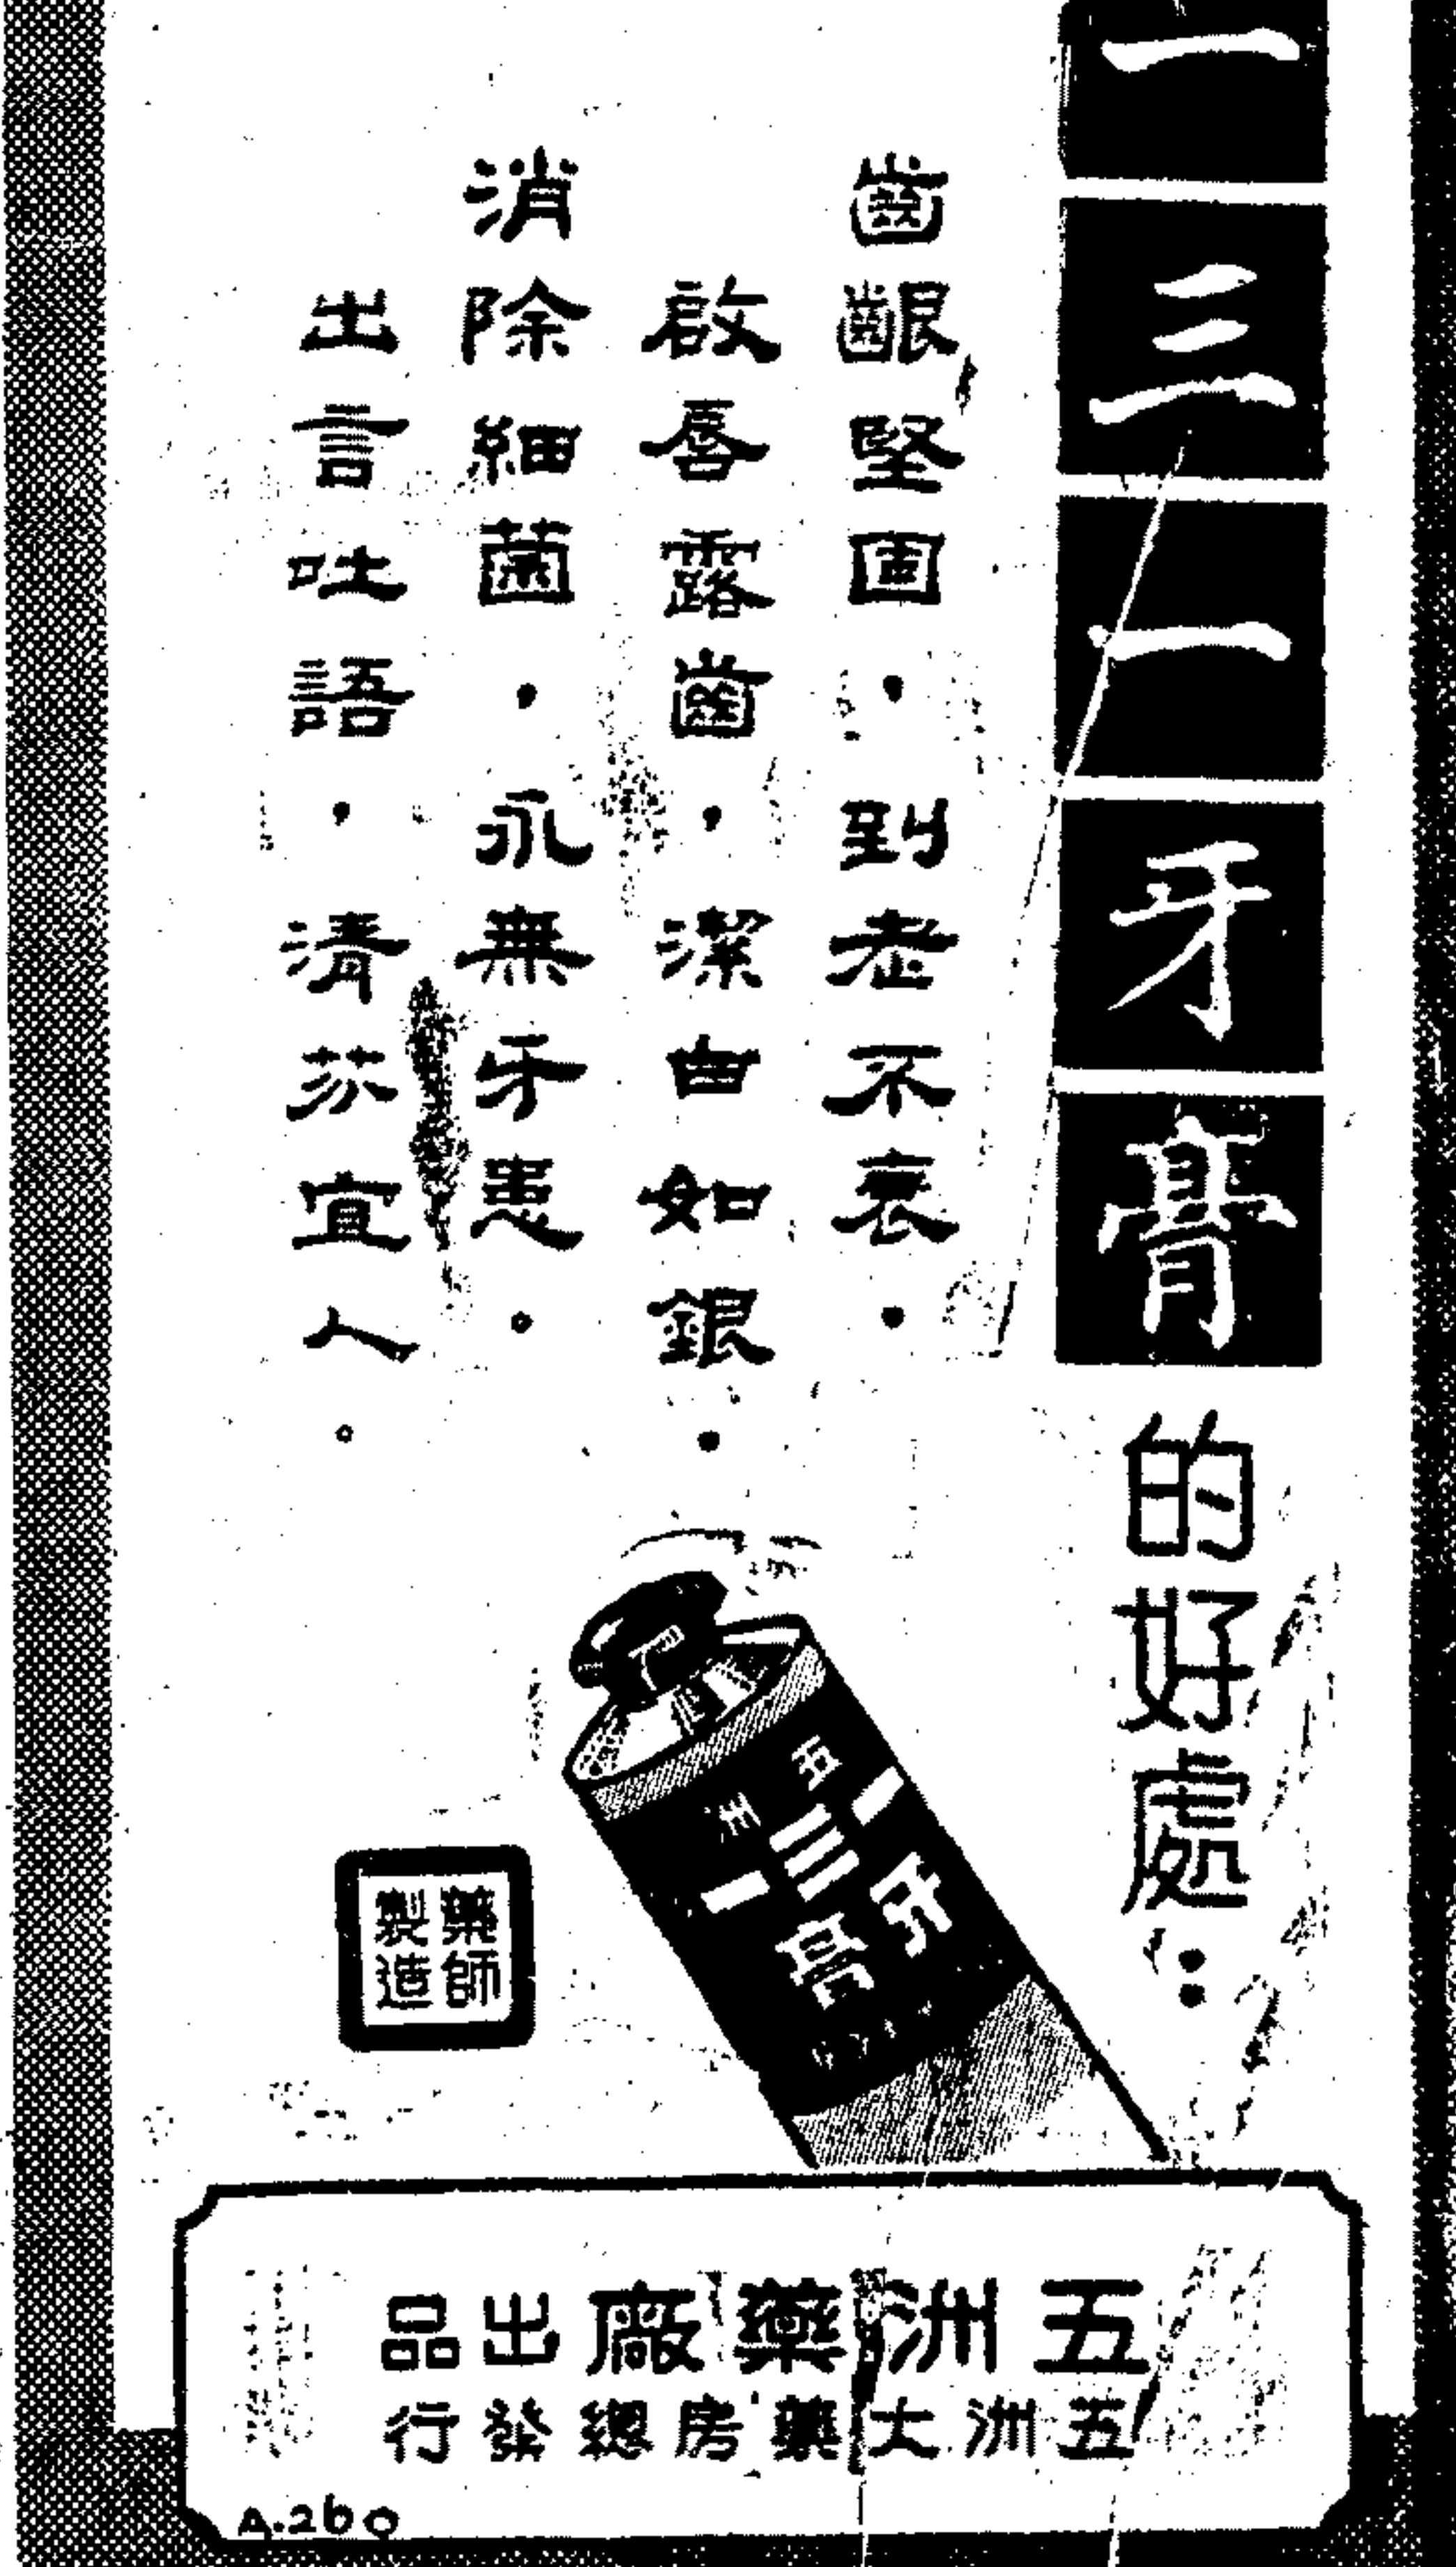 一三一牙膏的好處：
齒齦堅固，到老不衰。
啟唇露齒，潔白如銀。
消除細菌，永無牙患。
出言吐語，清芬宜人。
五洲
一三一
牙膏
藥師
製造
五洲藥廠出品
五洲大藥房總發行
A.260